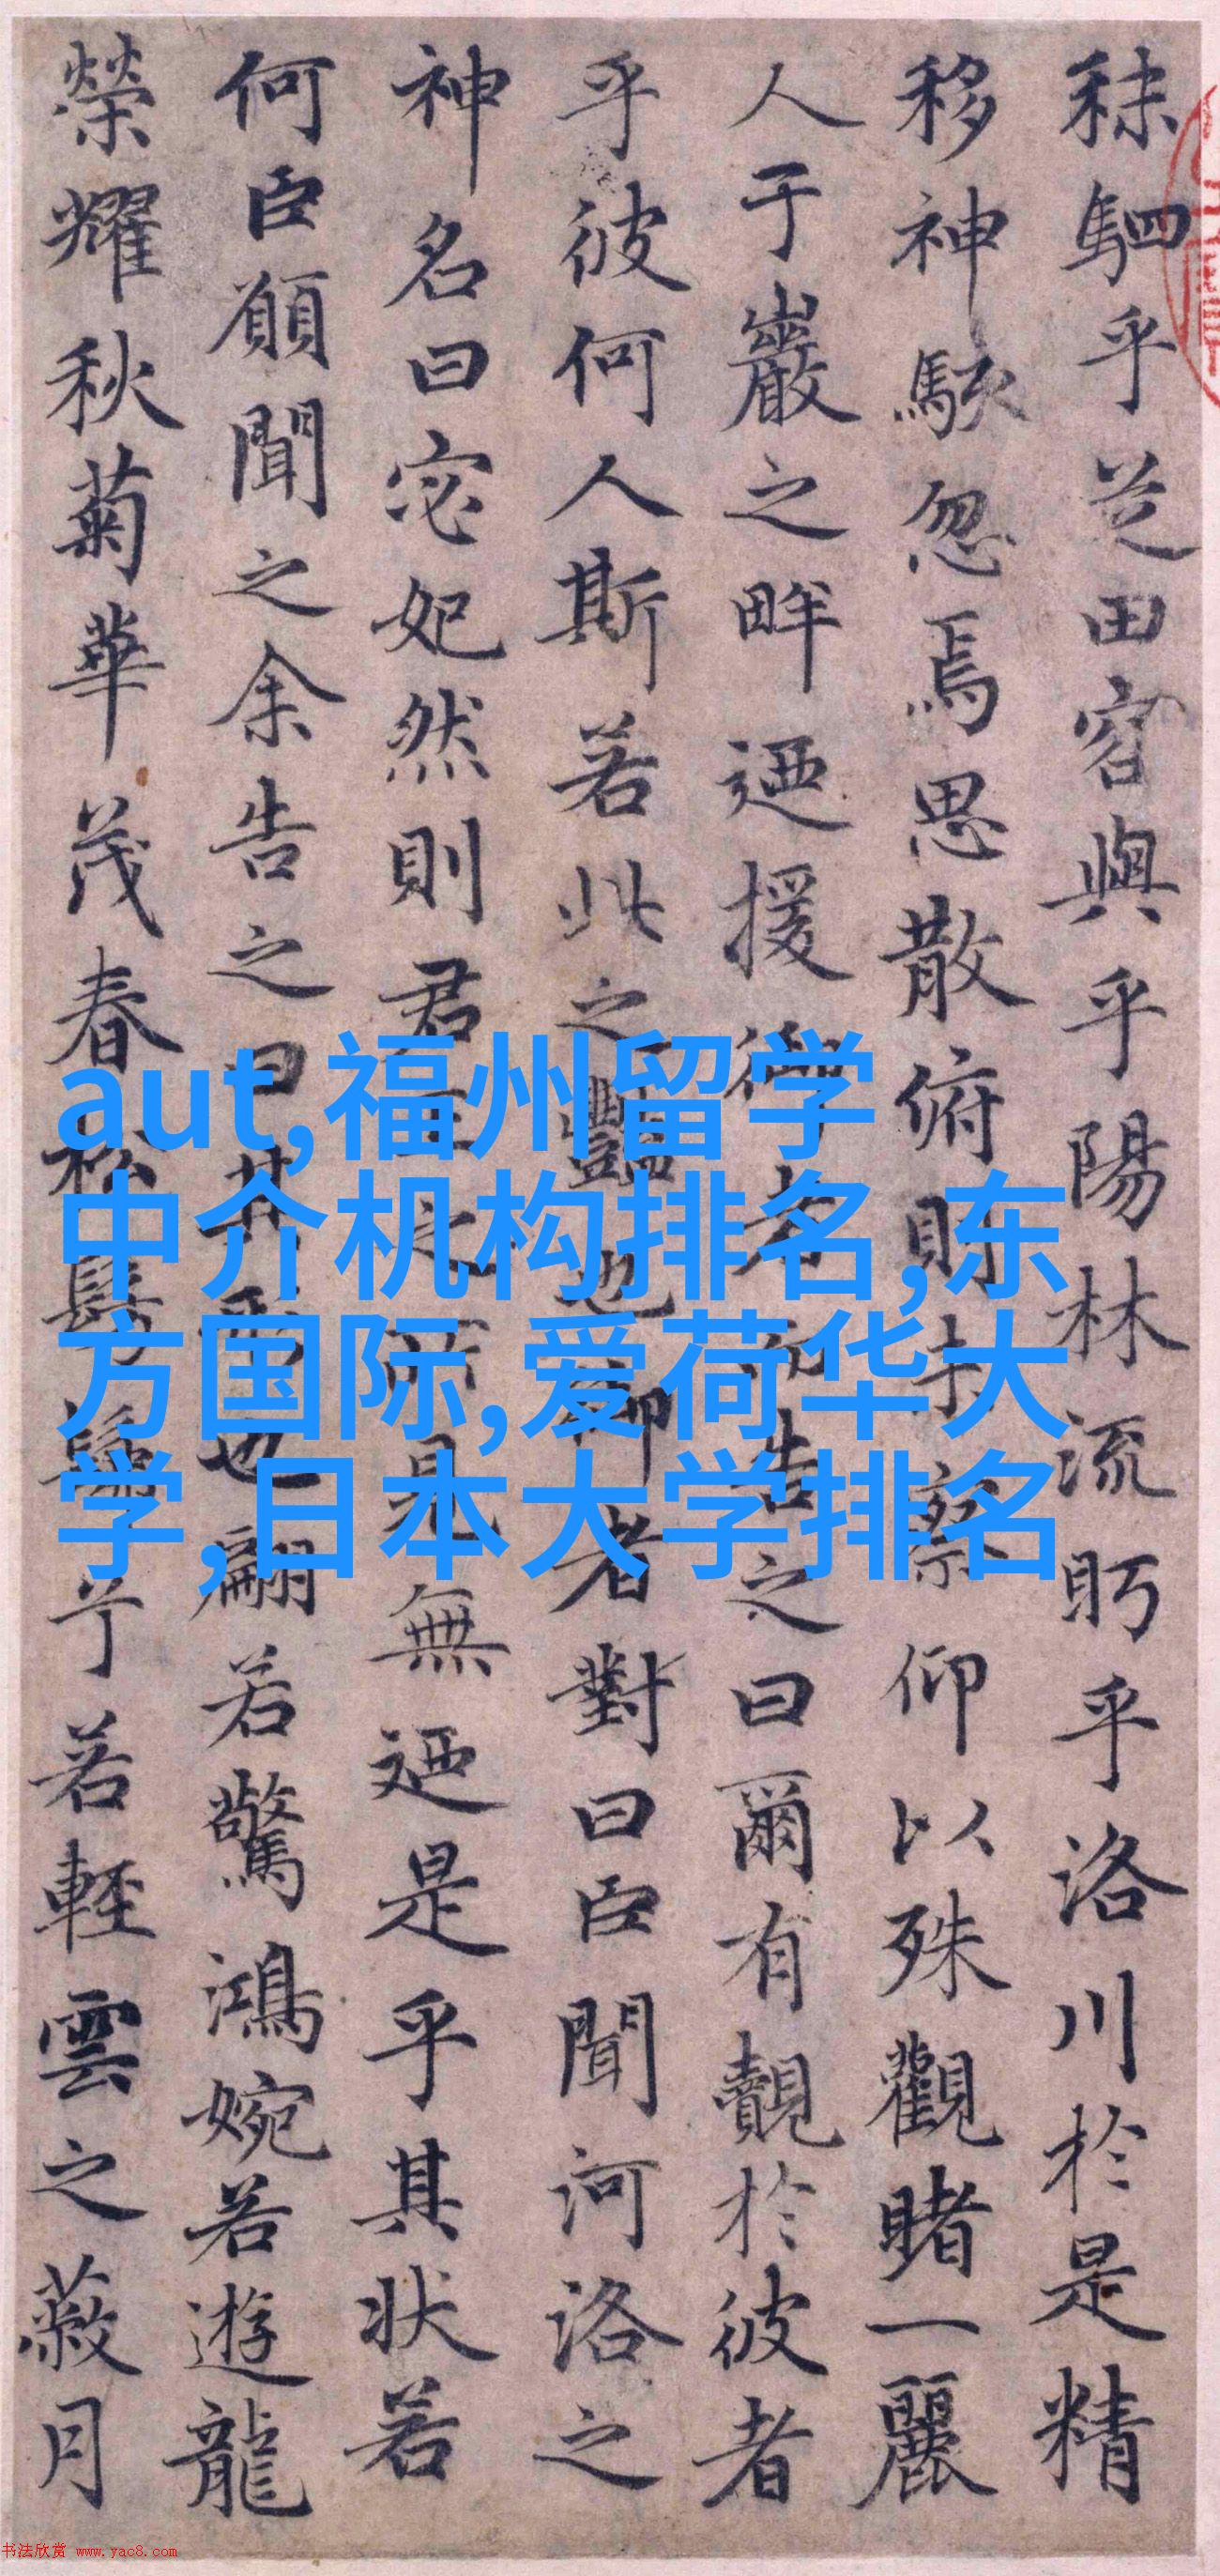 秣駟乎芝田容與乎陽林流眄乎洛川於是精
移神駭忽焉思散俯則未察仰以殊觀睹一麗
人于巖之畔迺援御者而告之曰爾有覿於彼者
乎彼何人斯若此之豔也御者對曰臣聞河洛之
神名曰宓妃然則君王之所見無迺是乎其狀若
何臣願聞之余告之曰其形也翩若驚鴻婉若遊龍
榮耀秋菊華茂春松髣髴兮若輕雲之蔽月
aut,福州留学
中介机构排名,东
方国际,爱荷华大
学,日本大学排名
书法欣赏 www.yac8.com